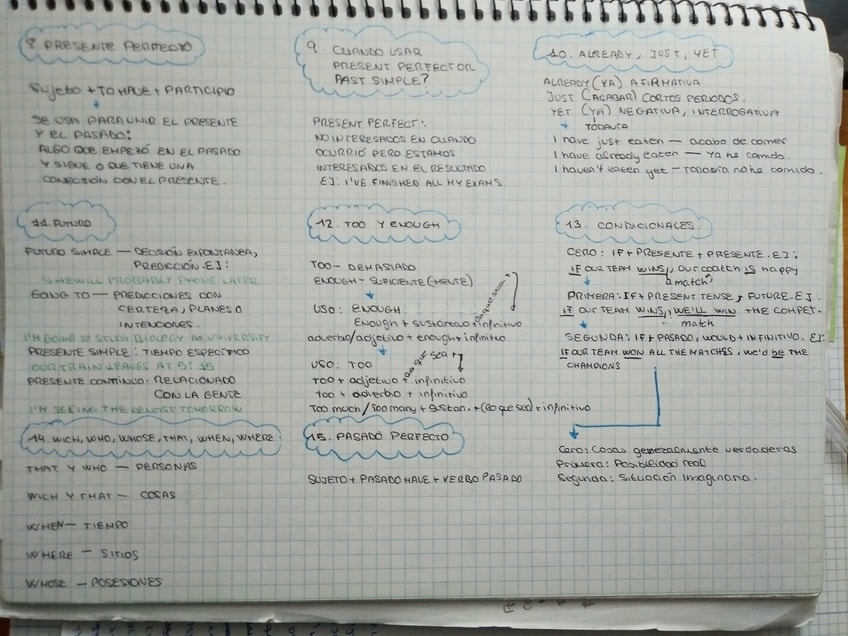 8. PRESENTE PERFECTO
Sujeto + TO HAVE + PARTICIPIO
SE USA PARA UNIR EL PRESENTE
Y EL PASADO:
ALGO QUE EMPEZÓ EN EL PASADO
Y SIGUE O QUE TIENE UNA
CONECISIÓN CON EL PRESENTE.
9. CUANDO USAR
PRESENT PERFECT OR
PAST SIMPLE?
PRESENT PERFECT:
NO INTERESADOS EN CUANDO
OCURRIÓ PERO ESTAMOS
INTERESADOS EN EL RESULTADO
EJ: I'VE FINISHED ALL MY EXAMS.
10. ALREADY, JUST, YET
ALREADY (YA) AFIRMATIVA
JUST (ACABAR) CORTOS PERIODOS.
YET (YA) NEGATIVA, INTERROGATIVA
TODAVÍA
I have just eaten — acabo de comer
I have already eaten — Ya he comido.
I haven't eaten yet — Todavía no he comido.
11. FUTURO
FUTURO SIMPLE — DECISIÓN EXPONTANEA,
PREDICCIÓN. EJ:
SHE WILL PROBABLY PHONE LATER
GOING TO — PREDICCIONES CON
CERTEZA, PLANES O
INTENCIONES.
I'M GOING TO STUDY BIOLOGY AT UNIVERSITY
PRESENTE SIMPLE: TIEMPO ESPECÍFICO
OUR TRAIN LEAVES AT
PRESENTE CONTINUO: RELACIONADO
CON LA GENTE
I'M SEEING THE DENTIST TOMORROW
12. TOO Y ENOUGH
TOO — DEMASIADO
ENOUGH — SUFICIENTE (MENTE)
USO: ENOUGH
Enough + sustantivo + infinitivo
adverbio/adjetivo + enough + infinitivo
lo que sea
USO: TOO
lo que sea +
Too + adjetivo + infinitivo
too + adverbio + infinitivo
Too much/Too many + sustan. + (lo que sea) + infinitivo
13. CONDICIONALES
CERO: IF + PRESENTE + PRESENTE. EJ:
IF OUR TEAM WINS, our coatch is happy
a match
PRIMERA: IF + PRESENT TENSE, FUTURE. EJ.
IF OUR TEAM WINS, WE'LL WIN THE COMPET.
match
SEGUNDA: IF + PASADO, WOULD + INFINITIVO. EJ:
IF OUR TEAM WON ALL THE MATCHES, WE'd BE THE
CHAMPIONS
Cero: Cosas generalmente verdaderas
Primera: Posibilidad real
Segunda: Situación imaginaria.
14. WICH, WHO, WHOSE, THAT, WHEN, WHERE
THAT Y WHO — PERSONAS
WICH Y THAT — COSAS
WHEN — TIEMPO
WHERE — SITIOS
WHOSE — POSESIONES
15. PASADO PERFECTO
SUJETO + PASADO HAVE + VERBO PASADO